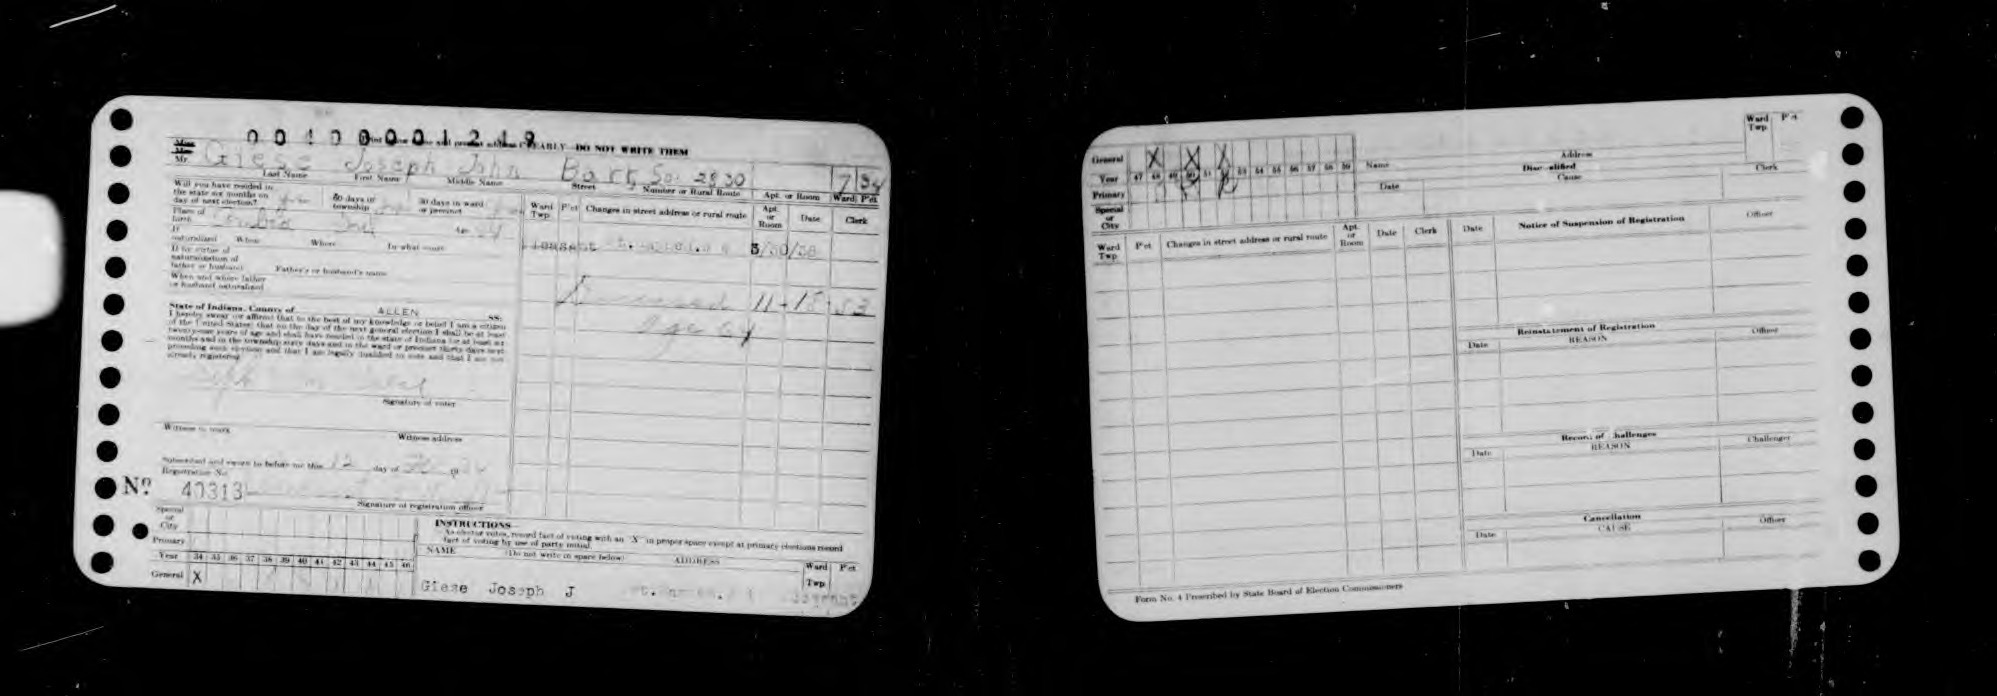 00400001249
CLEARLY—DO NOT WRITE THEM
Mr. Giese Joseph John Barr So 2830 7 34
Last Name First Name Middle Name Street Number or Rural Route Apt. or Room Ward P'ct
Will you have resided in
the state six months on
day of next election?
60 days in
township
30 days in ward
or precinct
Place of
birth
Age
If
naturalized When Where In what court
If by virtue of
naturalization of
father or husband Father's or husband's name
When and where father
or husband naturalized
State of Indiana, County of ALLEN SS:
I hereby swear or affirm that to the best of my knowledge or belief I am a citizen
of the United States; that on the day of the next general election I shall be at least
twenty-one years of age and shall have resided in the state of Indiana for at least six
months and in the township sixty days and in the ward or precinct thirty days next
preceding such election and that I am legally qualified to vote and that I am not
already registered
Signature of voter
Witness to mark Witness address
Subscribed and sworn to before me this 12 day of 19 34
Registration No.
No. 40313
Signature of registration officer
Ward Twp. P'ct Changes in street address or rural route Apt. or Room Date Clerk
5/30/38
Deceased 11-18-53
Age 64
Special
or
City
Primary
Year 34 35 36 37 38 39 40 41 42 43 44 45 46
General X
INSTRUCTIONS
As elector votes, record fact of voting with an "X" in proper space except at primary elections record
fact of voting by use of party initial.
NAME (Do not write in space below) ADDRESS Ward Twp. P'ct
Giese Joseph J
General X X X
Year 47 48 49 50 51 52 53 54 55 56 57 58 59
Primary
Special
or
City
Name Address Ward Twp. P'ct
Disqualified
Date Cause Clerk
Ward Twp. P'ct Changes in street address or rural route Apt. or Room Date Clerk
Date Notice of Suspension of Registration Officer
Reinstatement of Registration
Date REASON Officer
Record of Challenges
Date REASON Challenger
Cancellation
Date CAUSE Officer
Form No. 4 Prescribed by State Board of Election Commissioners